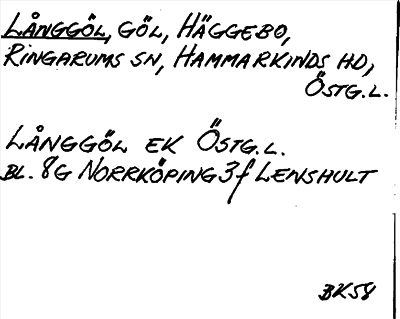 LÅNGGÖL, GÖL, HÄGGEBO,
RINGARUMS SN, HAMMARKINDS HD,
ÖSTG.L.
LÅNGGÖL EK ÖSTG.L.
BL. 8G NORRKÖPING 3f LENSHULT
BK58